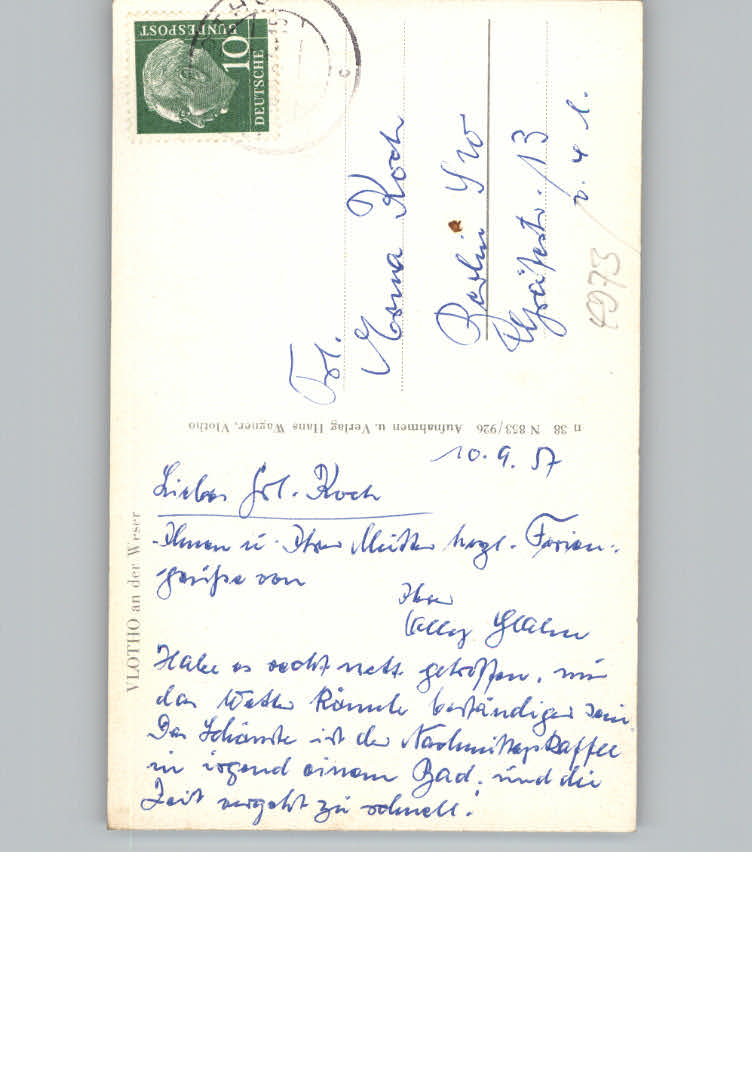 DEUTSCHE
BUNDESPOST
10
Frl.
Erna Koch
Berlin SW
Gräfestr. 13
v. 4 l.
4973
n 38 N 853/926 Aufnahmen u. Verlag Hans Wagner, Vlotho
VLOTHO an der Weser
10.9.57
Liebes Frl. Koch
Ihnen u. Ihrer Mutter herzl. Ferien-
grüße von
Ihre
Habe es recht nett getroffen, nur
das Wetter könnte beständiger sein.
Das Schönste ist der Nachmittagskaffee
in irgend einem Bad, und die
Zeit vergeht zu schnell!